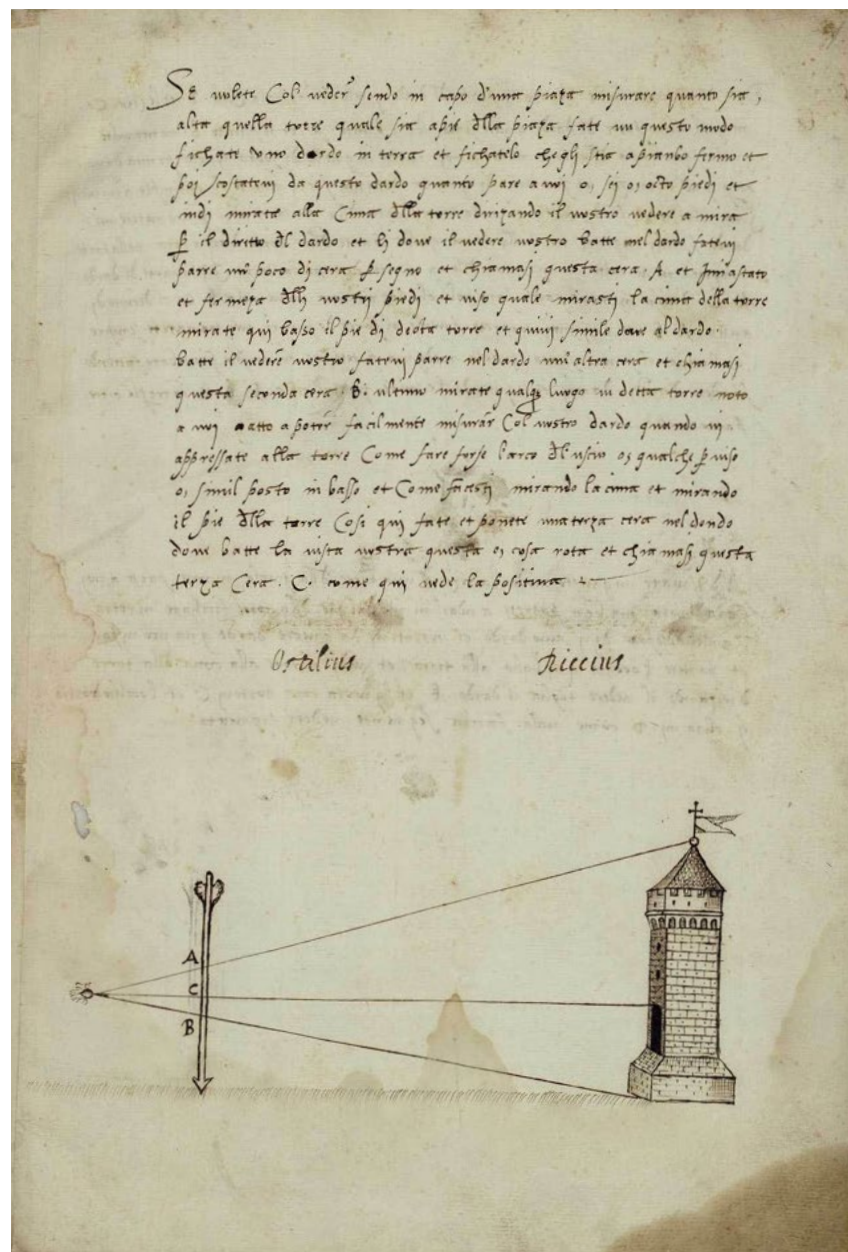 Se volete Col veder sendo in capo d'una piaza misurare quanto sia,
alta quella torre quale sia apie dlla piaza fate in questo modo
fichate uno dardo in terra et fichatelo chegli stia apiombo fermo et
poi scostatevi da questo dardo quanto pare avoi o, sei o, otto piedi et
indi mirate alla Cima dlla torre drizando il vostro vedere a mira
p il diritto dl dardo et li dove il vedere vostro batte nel dardo fatevi
porre un poco di cera p segno et chiamasi questa cera. A. et
et fermeza dlli vostri piedi et viso quale mirasti la cima della torre
mirate qui basso il pie di detta torre et quivi simile dove al dardo.
batte il vedere vostro fatevi porre nel dardo un'altra cera et chiamasi
questa seconda cera. B. ultimo mirate qualche luogo in detta torre noto
a voi atto a poter facilmente misurar Col vostro dardo quando vi
appressate alla torre Come fare forse l'arco dl'uscio o, qualche
o, simil posto in basso et Come facesti mirando la cima et mirando
il pie dlla torre Cosi qui fate et ponete una terza cera nel
dove batte la vista vostra questa e, cosa nota et chiamasi questa
terza Cera. C. come qui vede la positiva
Ostilius Riccius
A
C
B